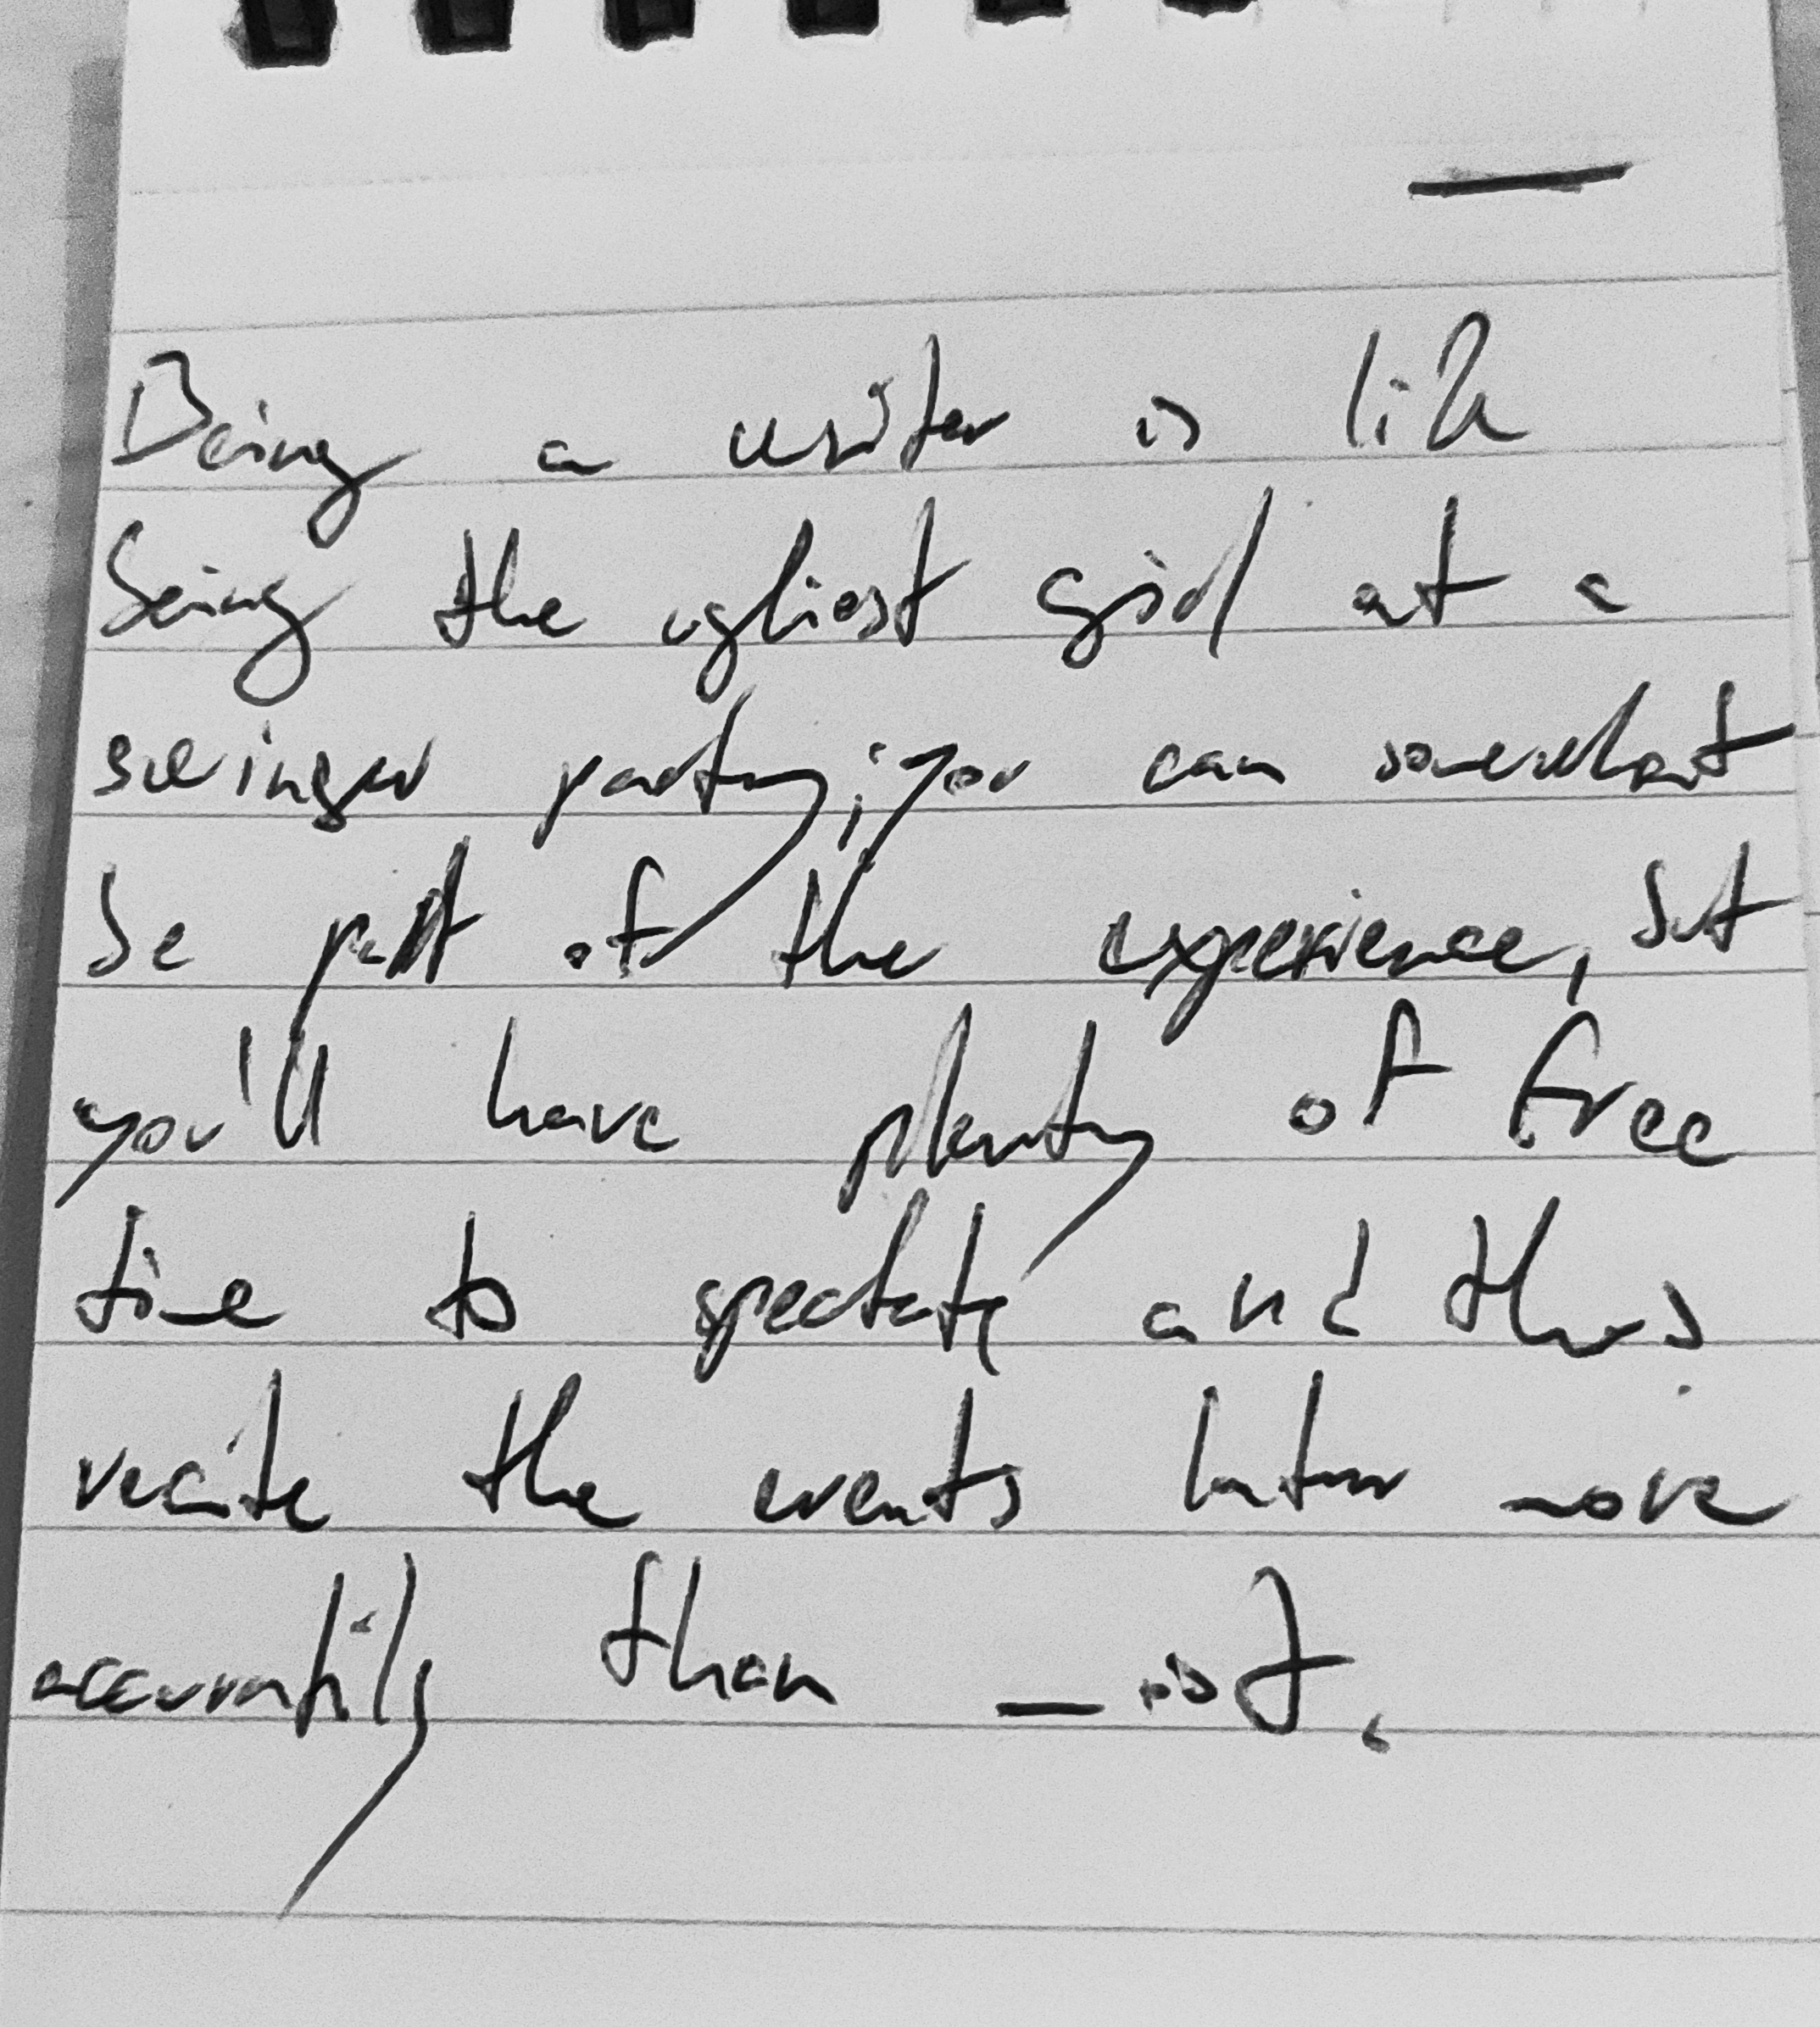 Being a writer is like
being the ugliest girl at a
swinger party; you can somewhat
be part of the experience, but
you'll have plenty of free
time to spectate and thus
recite the events later more
accuratily than most.